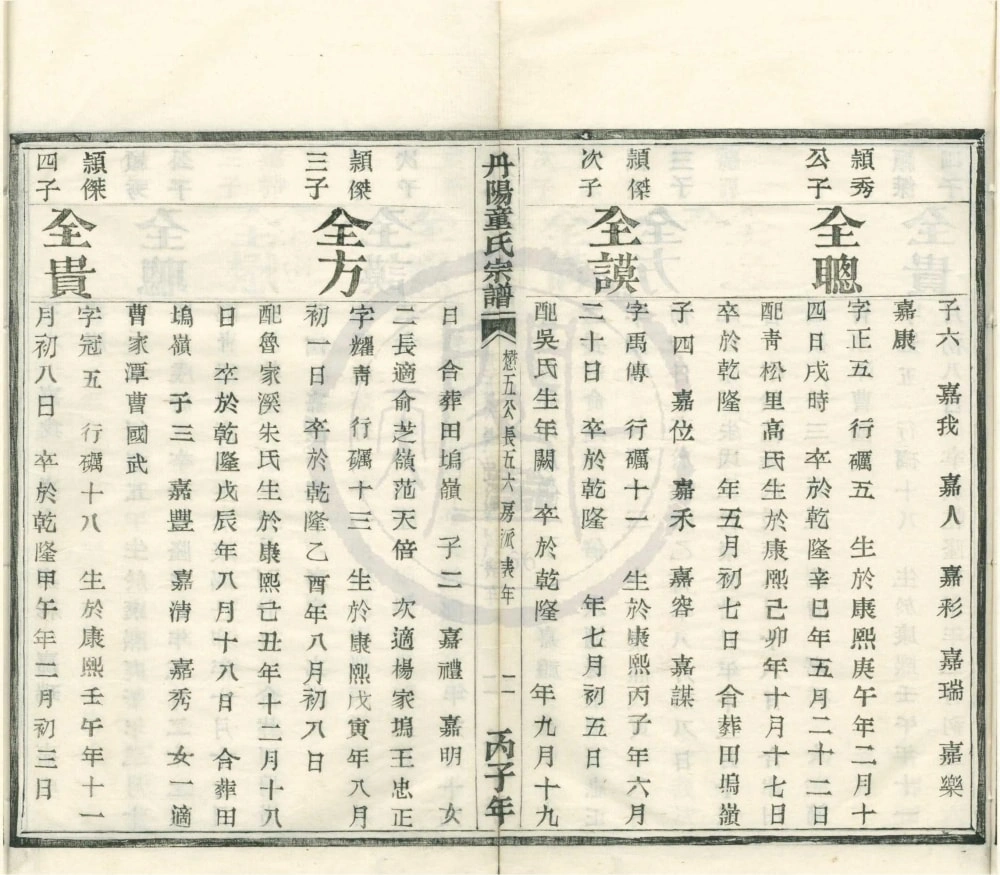 子六 嘉我 嘉人 嘉彩 嘉瑞 嘉樂
嘉康
頴秀
公子
全聰
字正五 行礪五 生於康熙庚午年二月十
四日戌時 卒於乾隆辛巳年五月二十二日
配青松里高氏生於康熙己卯年十月十七日
卒於乾隆 年五月初七日 合葬田塢嶺
子四 嘉位 嘉禾 嘉容 嘉謀
頴傑
次子
全謨
字禹傳 行礪十一 生於康熙丙子年六月
二十日 卒於乾隆 年七月初五日
配吳氏生年闕 卒於乾隆 年九月十九
丹陽童氏宗譜
懋五公長五六房派
二
丙子年
日 合葬田塢嶺 子二 嘉禮 嘉明 女
二長適俞芝嶺范天倍 次適楊家塢王忠正
頴傑
三子
全方
字耀青 行礪十三 生於康熙戊寅年八月
初一日 卒於乾隆乙酉年八月初八日
配魯家溪朱氏生於康熙己丑年十二月十八
日 卒於乾隆戊辰年八月十八日 合葬田
塢嶺 子三 嘉豐 嘉清 嘉秀 女一適
曹家潭曹國武
頴傑
四子
全貴
字冠五 行礪十八 生於康熙壬午年十一
月初八日 卒於乾隆甲午年二月初三日